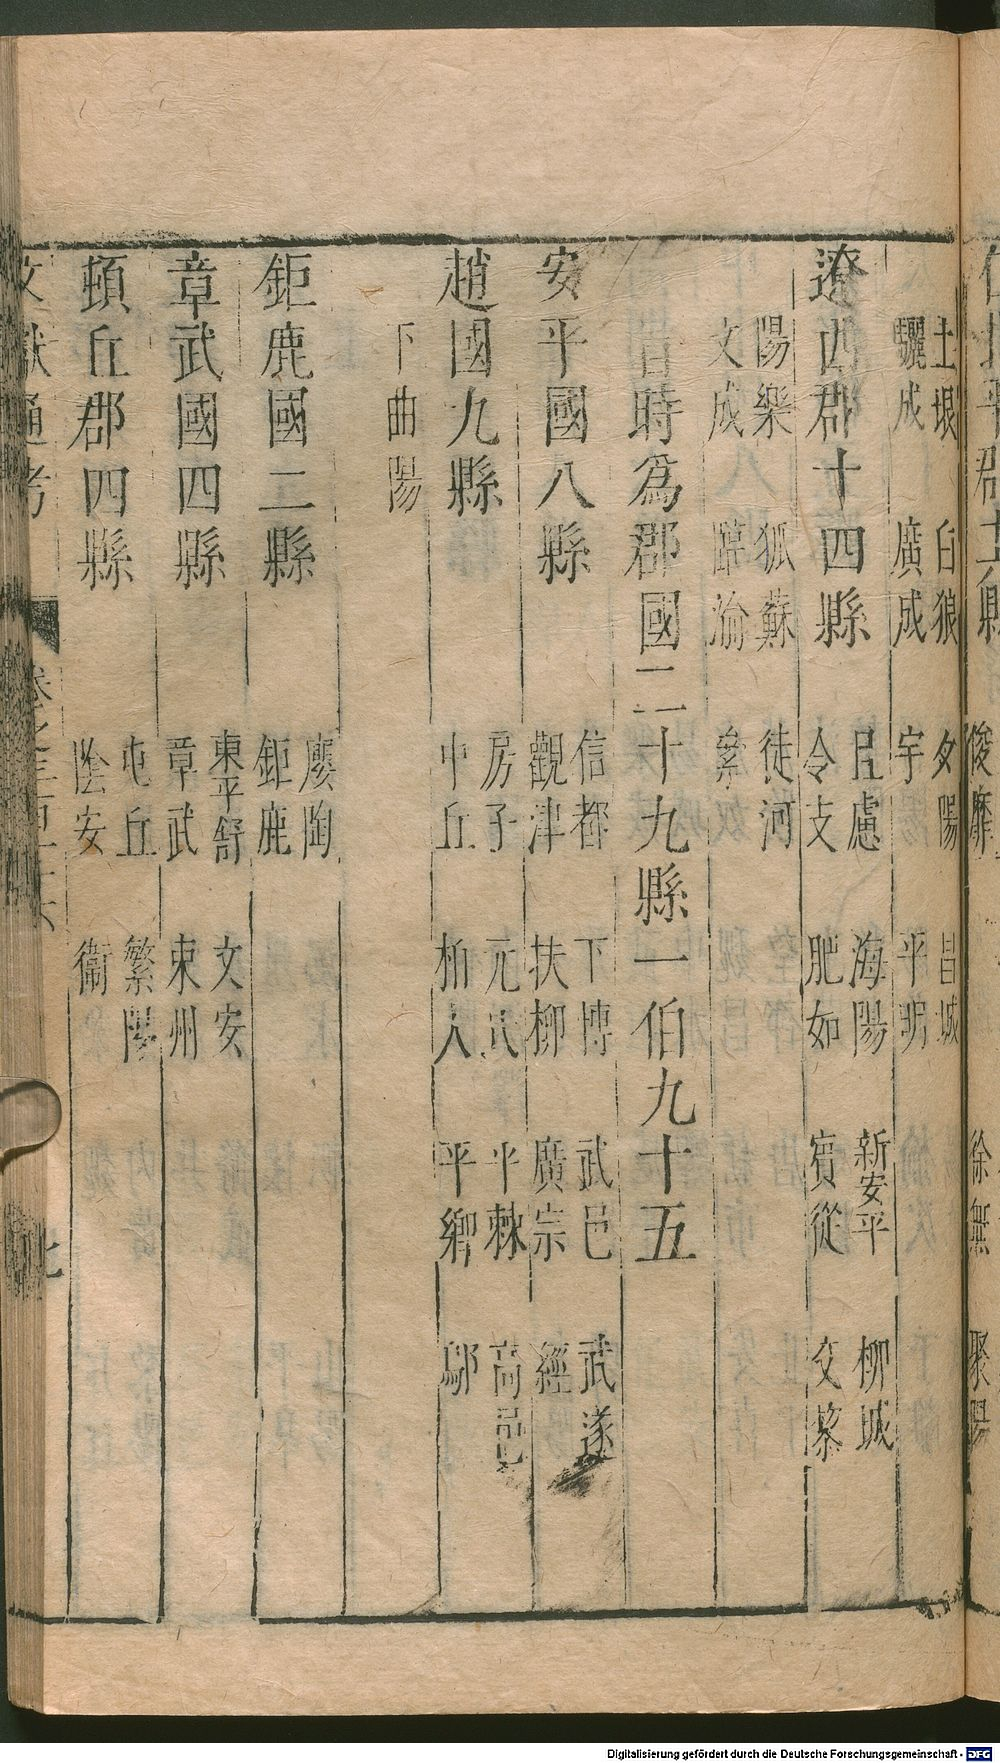 土垠 白狼 夕陽 昌城
驪成 廣成 宇 平明
遼西郡十四縣
且慮 海陽 新安平 柳城
令支 肥如 賓從 交黎
陽樂 狐蘇 徒河
文成 臨渝 絫
晋時爲郡國二十九縣一伯九十五
安平國八縣
信都 下博 武邑 武遂
觀津 扶柳 廣宗 經
趙國九縣
房子 元氏 平棘 高邑
中丘 柏人 平鄉 鄡
下曲陽
鉅鹿國二縣
廮陶
鉅鹿
章武國四縣
東平舒 文安
章武 束州
頓丘郡四縣
屯丘 繁陽
陰安 衞
文獻通考
俊靡 徐無 聚陽
Digitalisierung gefördert durch die Deutsche Forschungsgemeinschaft - DFG